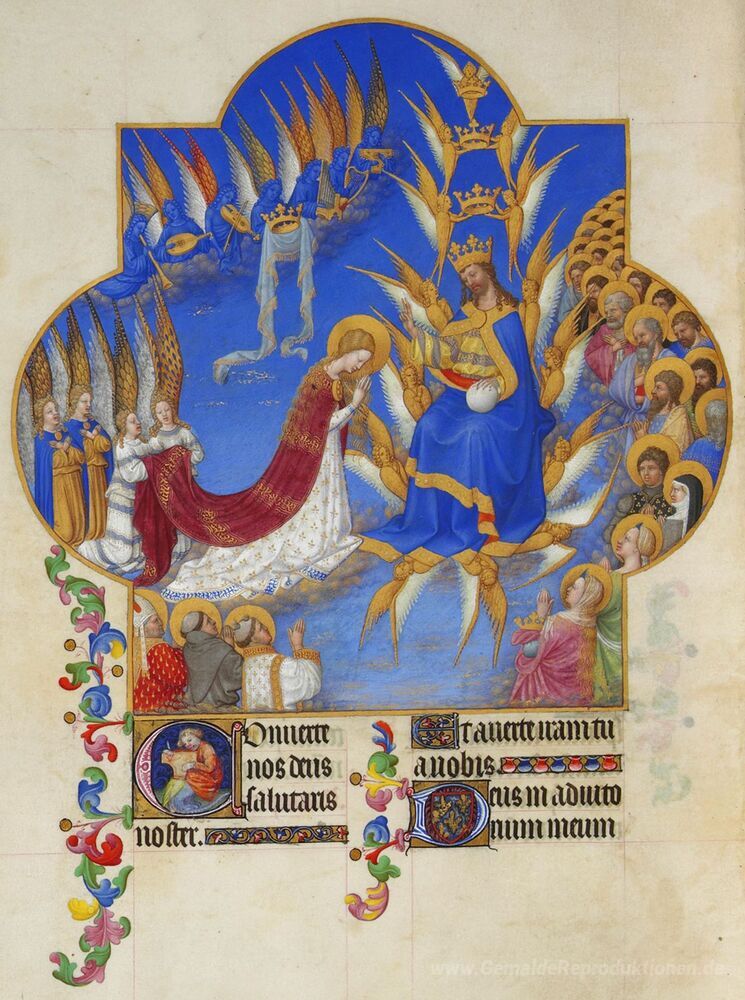 Conuerte
nos deus
salutaris
noster.
Et auerte iram tu
a nobis.
Deus in adiuto
rium meum
www.GemaldeReproduktionen.de